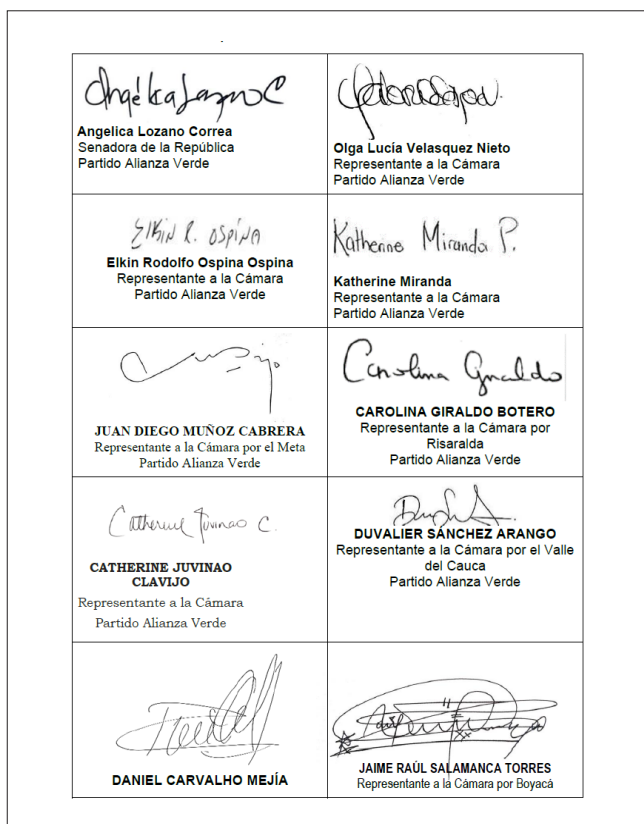 Angélica Lozano C
Angelica Lozano Correa
Senadora de la República
Partido Alianza Verde
Olga Lucía Velasquez Nieto
Representante a la Cámara
Partido Alianza Verde
Elkin R. Ospina
Elkin Rodolfo Ospina Ospina
Representante a la Cámara
Partido Alianza Verde
Katherine Miranda P.
Katherine Miranda
Representante a la Cámara
Partido Alianza Verde
JUAN DIEGO MUÑOZ CABRERA
Representante a la Cámara por el Meta
Partido Alianza Verde
Carolina Giraldo
CAROLINA GIRALDO BOTERO
Representante a la Cámara por
Risaralda
Partido Alianza Verde
Catherine Juvinao C.
CATHERINE JUVINAO
CLAVIJO
Representante a la Cámara
Partido Alianza Verde
DUVALIER SÁNCHEZ ARANGO
Representante a la Cámara por el Valle
del Cauca
Partido Alianza Verde
DANIEL CARVALHO MEJÍA
JAIME RAÚL SALAMANCA TORRES
Representante a la Cámara por Boyacá